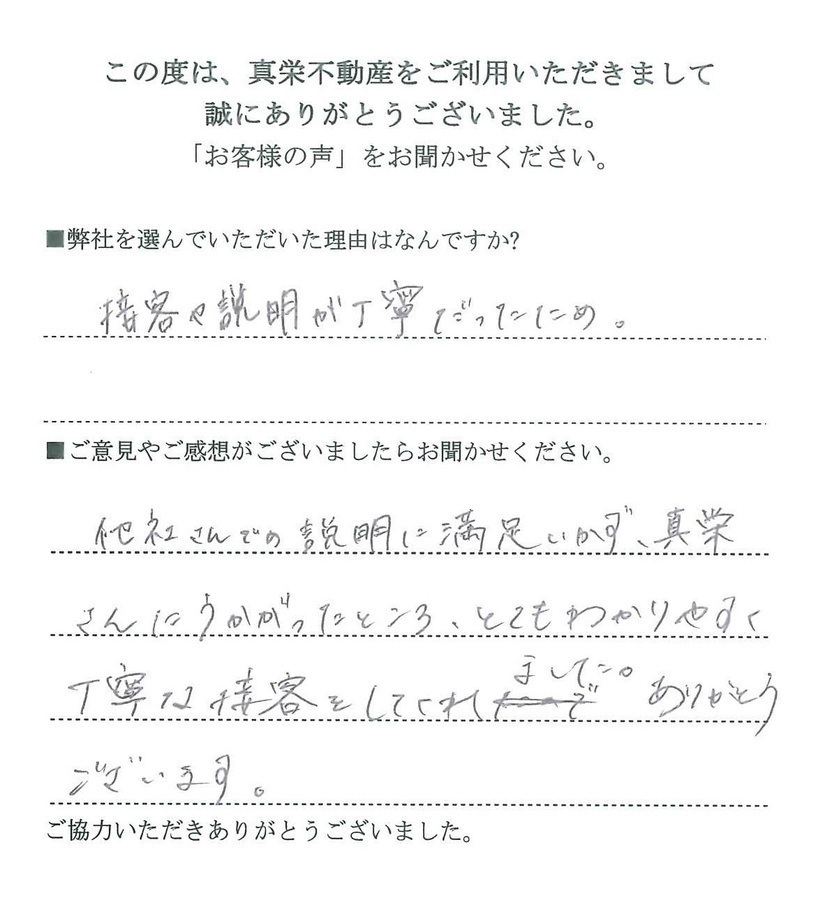 この度は、真栄不動産をご利用いただきまして
誠にありがとうございました。
「お客様の声」をお聞かせください。
■弊社を選んでいただいた理由はなんですか?
接客や説明が丁寧だったため。
■ご意見やご感想がございましたらお聞かせください。
他社さんでの説明に満足いかず、真栄
さんにうかがったところ、とてもわかりやすく
丁寧な接客をしてくれました。ありがとう
ございます。
ご協力いただきありがとうございました。